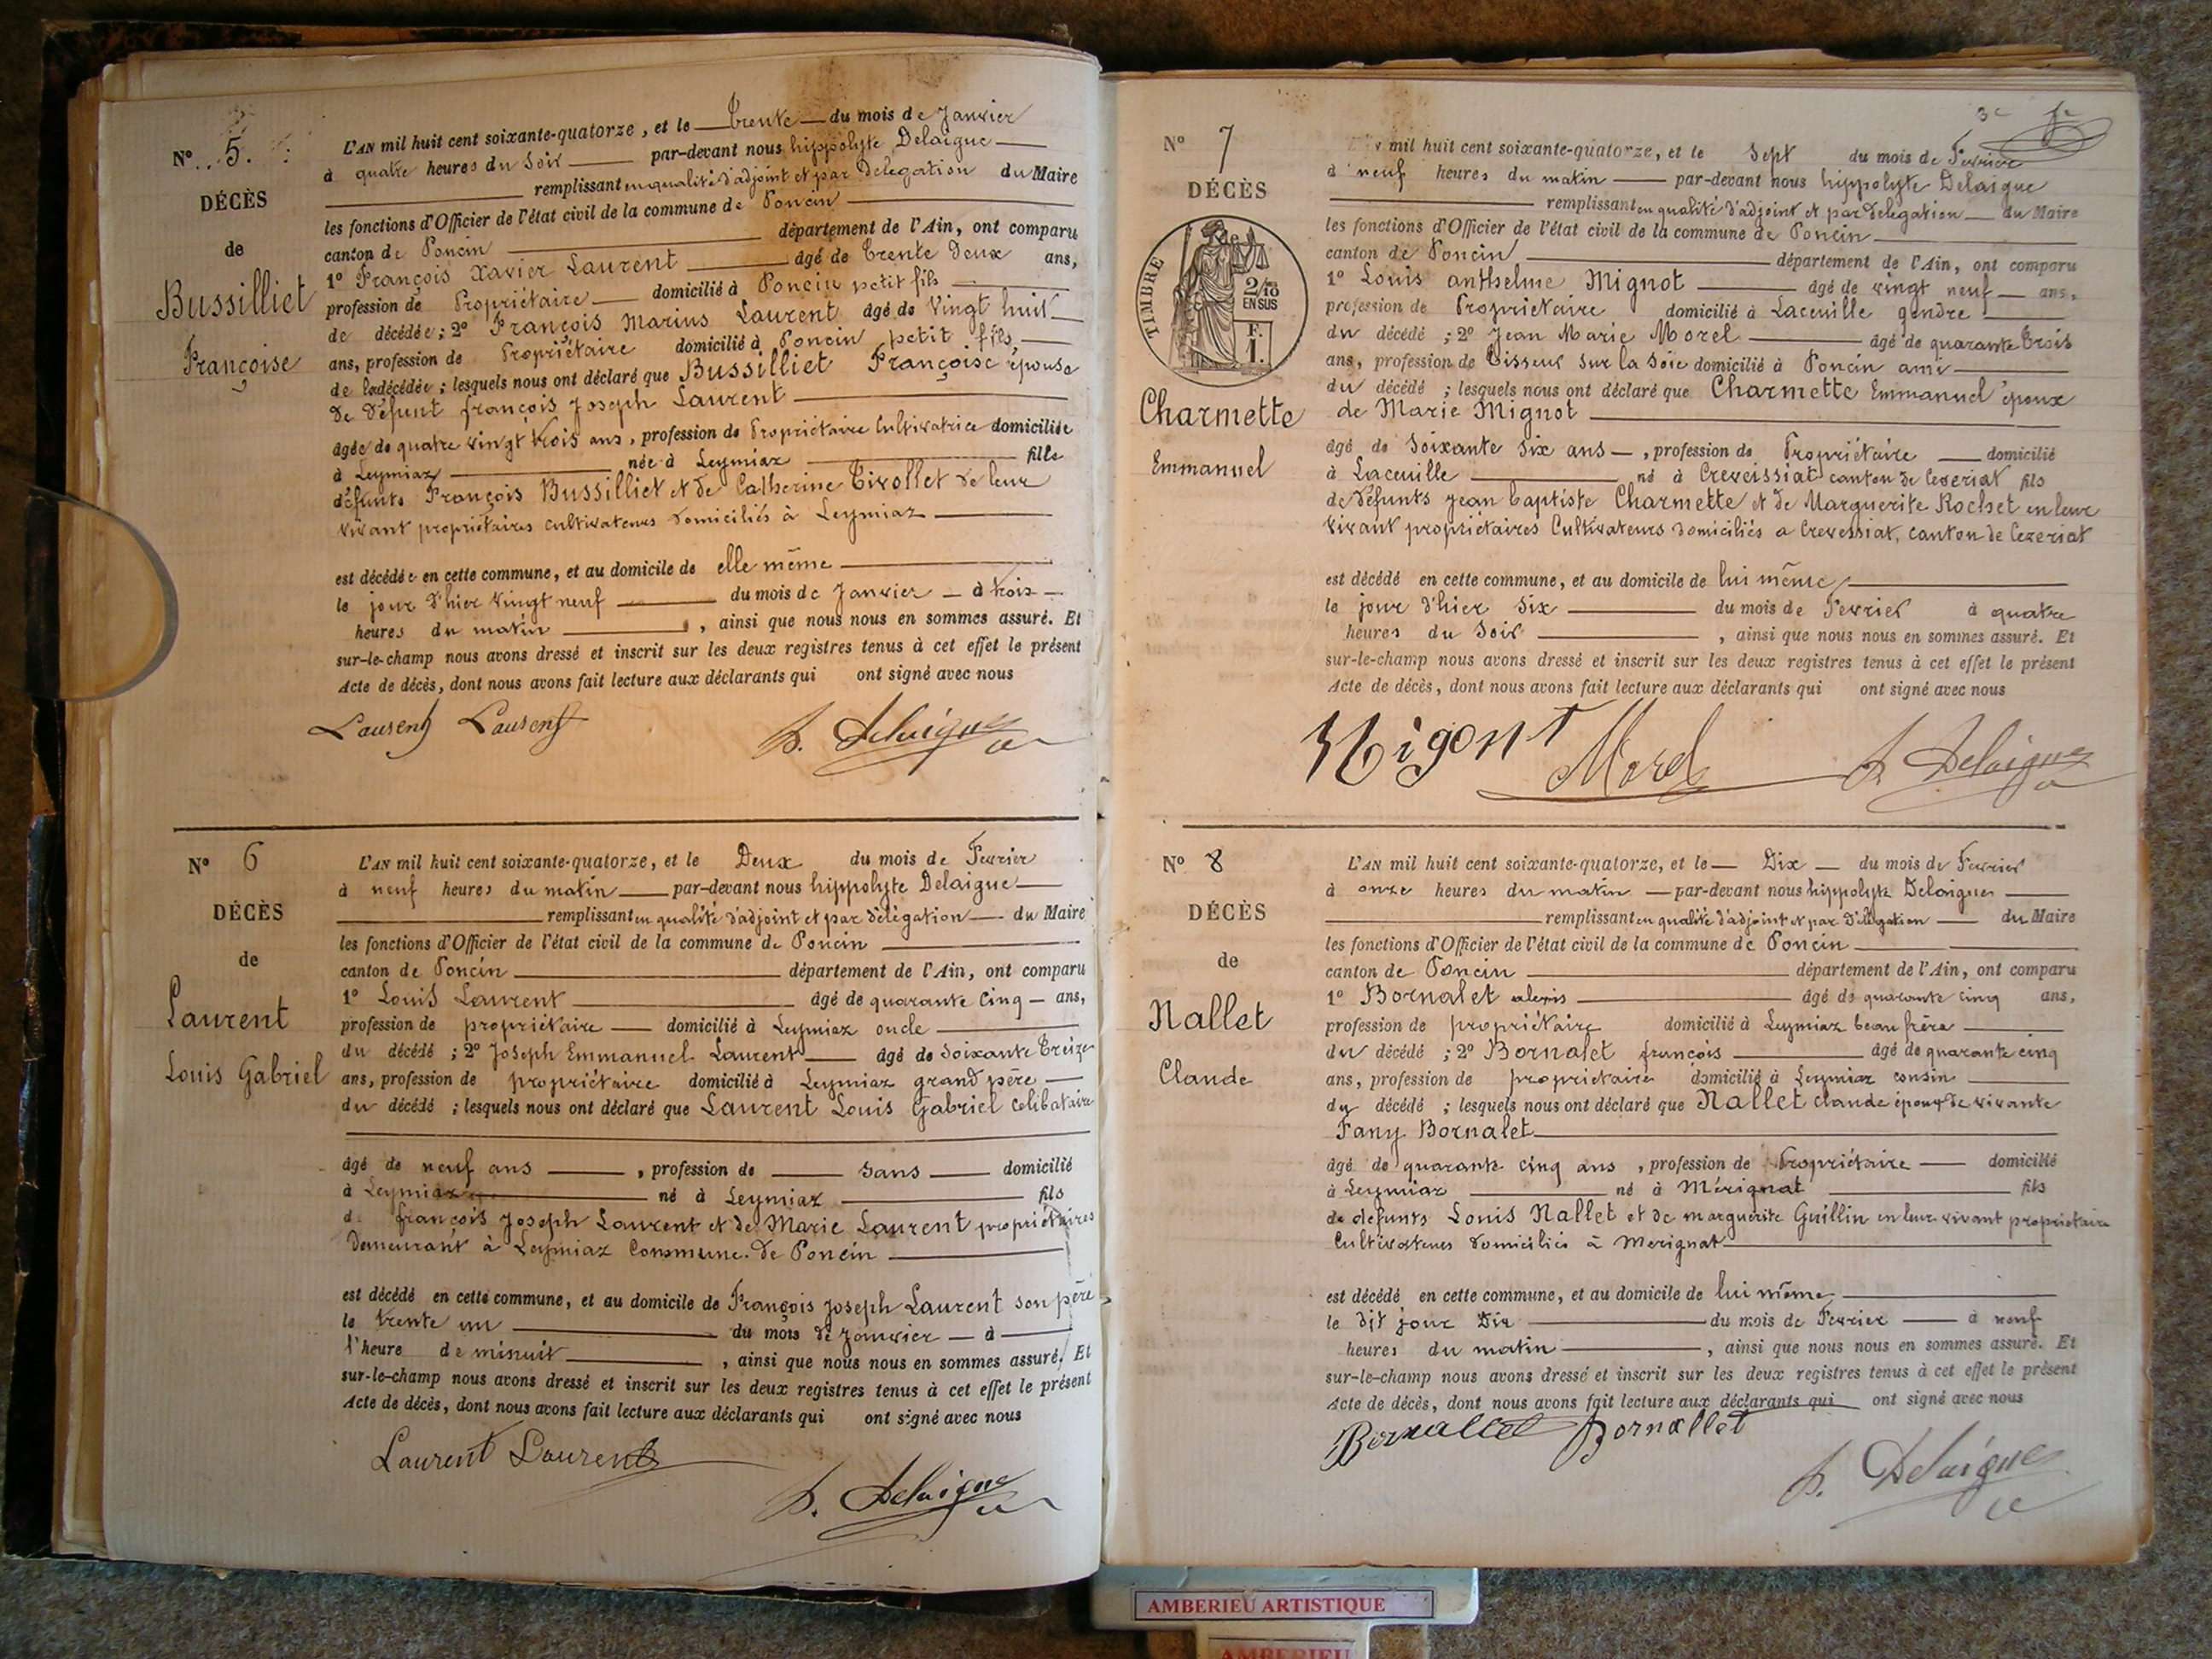 N° 5.
DÉCÈS
de
Bussilliet
Françoise
L'AN mil huit cent soixante-quatorze, et le trente du mois de Janvier
à quatre heures du Soir par-devant nous hippolyte Delaigue
remplissant en qualité d'adjoint et par Délégation du Maire
les fonctions d'Officier de l'état civil de la commune de Poncin
canton de Poncin département de l'Ain, ont comparu
1° François Xavier Laurent âgé de trente Deux ans,
profession de Propriétaire domicilié à Poncin petit fils
de décédée ; 2° François Marius Laurent âgé de vingt huit
ans, profession de Propriétaire domicilié à Poncin petit fils,
de la décédée ; lesquels nous ont déclaré que Bussilliet Françoise épouse
De Défunt françois Joseph Laurent
âgée de quatre vingt trois ans, profession de Propriétaire Cultivatrice domiciliée
à Leymiaz née à Leymiaz fille
défunts François Bussilliet et de Catherine Tivollet de leur
vivant propriétaires cultivateurs Domiciliés à Leymiaz
est décédée en cette commune, et au domicile de elle même
le jour d'hier vingt neuf du mois de Janvier à trois
heures du matin, ainsi que nous nous en sommes assuré. Et
sur-le-champ nous avons dressé et inscrit sur les deux registres tenus à cet effet le présent
Acte de décès, dont nous avons fait lecture aux déclarants qui ont signé avec nous
Laurent Laurent h. Delaigue
N° 6
DÉCÈS
de
Laurent
Louis Gabriel
L'AN mil huit cent soixante-quatorze, et le Deux du mois de Fevrier
à neuf heures du matin par-devant nous hippolyte Delaigue
remplissant en qualité d'adjoint et par délégation du Maire
les fonctions d'Officier de l'état civil de la commune de Poncin
canton de Poncin département de l'Ain, ont comparu
1° Louis Laurent âgé de quarante Cinq ans,
profession de propriétaire domicilié à Leymiaz oncle
du décédé ; 2° Joseph Emmanuel Laurent âgé de Soixante treize
ans, profession de propriétaire domicilié à Leymiaz grand père
du décédé ; lesquels nous ont déclaré que Laurent Louis Gabriel celibataire
âgé de neuf ans, profession de Sans domicilié
à Leymiaz né à Leymiaz fils
d. françois Joseph Laurent et de Marie Laurent propriétaires
Demeurant à Leymiaz Commune de Poncin
est décédé en cette commune, et au domicile de François Joseph Laurent son père
le trente un du mois de Janvier à
l'heure de minuit, ainsi que nous nous en sommes assuré. Et
sur-le-champ nous avons dressé et inscrit sur les deux registres tenus à cet effet le présent
Acte de décès, dont nous avons fait lecture aux déclarants qui ont signé avec nous
Laurent Laurent
h. Delaigue
N° 7
DÉCÈS
TIMBRE
2/10
EN SUS
F.
1.
Charmette
Emmanuel
mil huit cent soixante-quatorze, et le Sept du mois de Fevrier
à neuf heures du matin par-devant nous hippolyte Delaigue
remplissant en qualité d'adjoint et par Délegation du Maire
les fonctions d'Officier de l'état civil de la commune de Poncin
canton de Poncin département de l'Ain, ont comparu
1° Louis anthelme Mignot âgé de vingt neuf ans,
profession de Propriétaire domicilié à Laceuille gendre
du décédé ; 2° Jean Marie Morel âgé de quarante trois
ans, profession de Tisseur sur la Soie domicilié à Poncin ami
du décédé ; lesquels nous ont déclaré que Charmette Emmanuel époux
de Marie Mignot
âgé de Soixante Six ans, profession de Propriétaire domicilié
à Laceuille né à Creveissiat canton de Ceseriat fils
de Défunts Jean baptiste Charmette et de Marguerite Rochet en leur
vivant propriétaires Cultivateurs Domiciliés a Crevessiat, canton de Cezeriat
est décédé en cette commune, et au domicile de lui même
le jour d'hier Six du mois de Fevrier à quatre
heures du Soir, ainsi que nous nous en sommes assuré. Et
sur-le-champ nous avons dressé et inscrit sur les deux registres tenus à cet effet le présent
Acte de décès, dont nous avons fait lecture aux déclarants qui ont signé avec nous
Migont Morel h. Delaigue
N° 8
DÉCÈS
de
Nallet
Claude
L'AN mil huit cent soixante-quatorze, et le Dix du mois de Fevrier
à onze heures du matin par-devant nous hippolyte Delaigue
remplissant en qualité d'adjoint et par Délégation du Maire
les fonctions d'Officier de l'état civil de la commune de Poncin
canton de Poncin département de l'Ain, ont comparu
1° Bornalet alexis âgé de quarante cinq ans,
profession de propriétaire domicilié à Leymiaz beau frère
du décédé ; 2° Bornalet françois âgé de quarante cinq
ans, profession de propriétaire domicilié à Leymiaz cousin
du décédé ; lesquels nous ont déclaré que Nallet claude époux de vivante
Fany Bornalet
âgé de quarante cinq ans, profession de Propriétaire domicilié
à Leymiaz né à Mérignat fils
de défunts Louis Nallet et de marguerite Guillin en leur vivant propriétaire
Cultivateurs Domiciliés à Merignat
est décédé en cette commune, et au domicile de lui même
le dit jour Dix du mois de Fevrier à neuf
heures du matin, ainsi que nous nous en sommes assuré. Et
sur-le-champ nous avons dressé et inscrit sur les deux registres tenus à cet effet le présent
Acte de décès, dont nous avons fait lecture aux déclarants qui ont signé avec nous
Bornallet Bornallet
h. Delaigue
AMBERIEU ARTISTIQUE
AMBERIEU